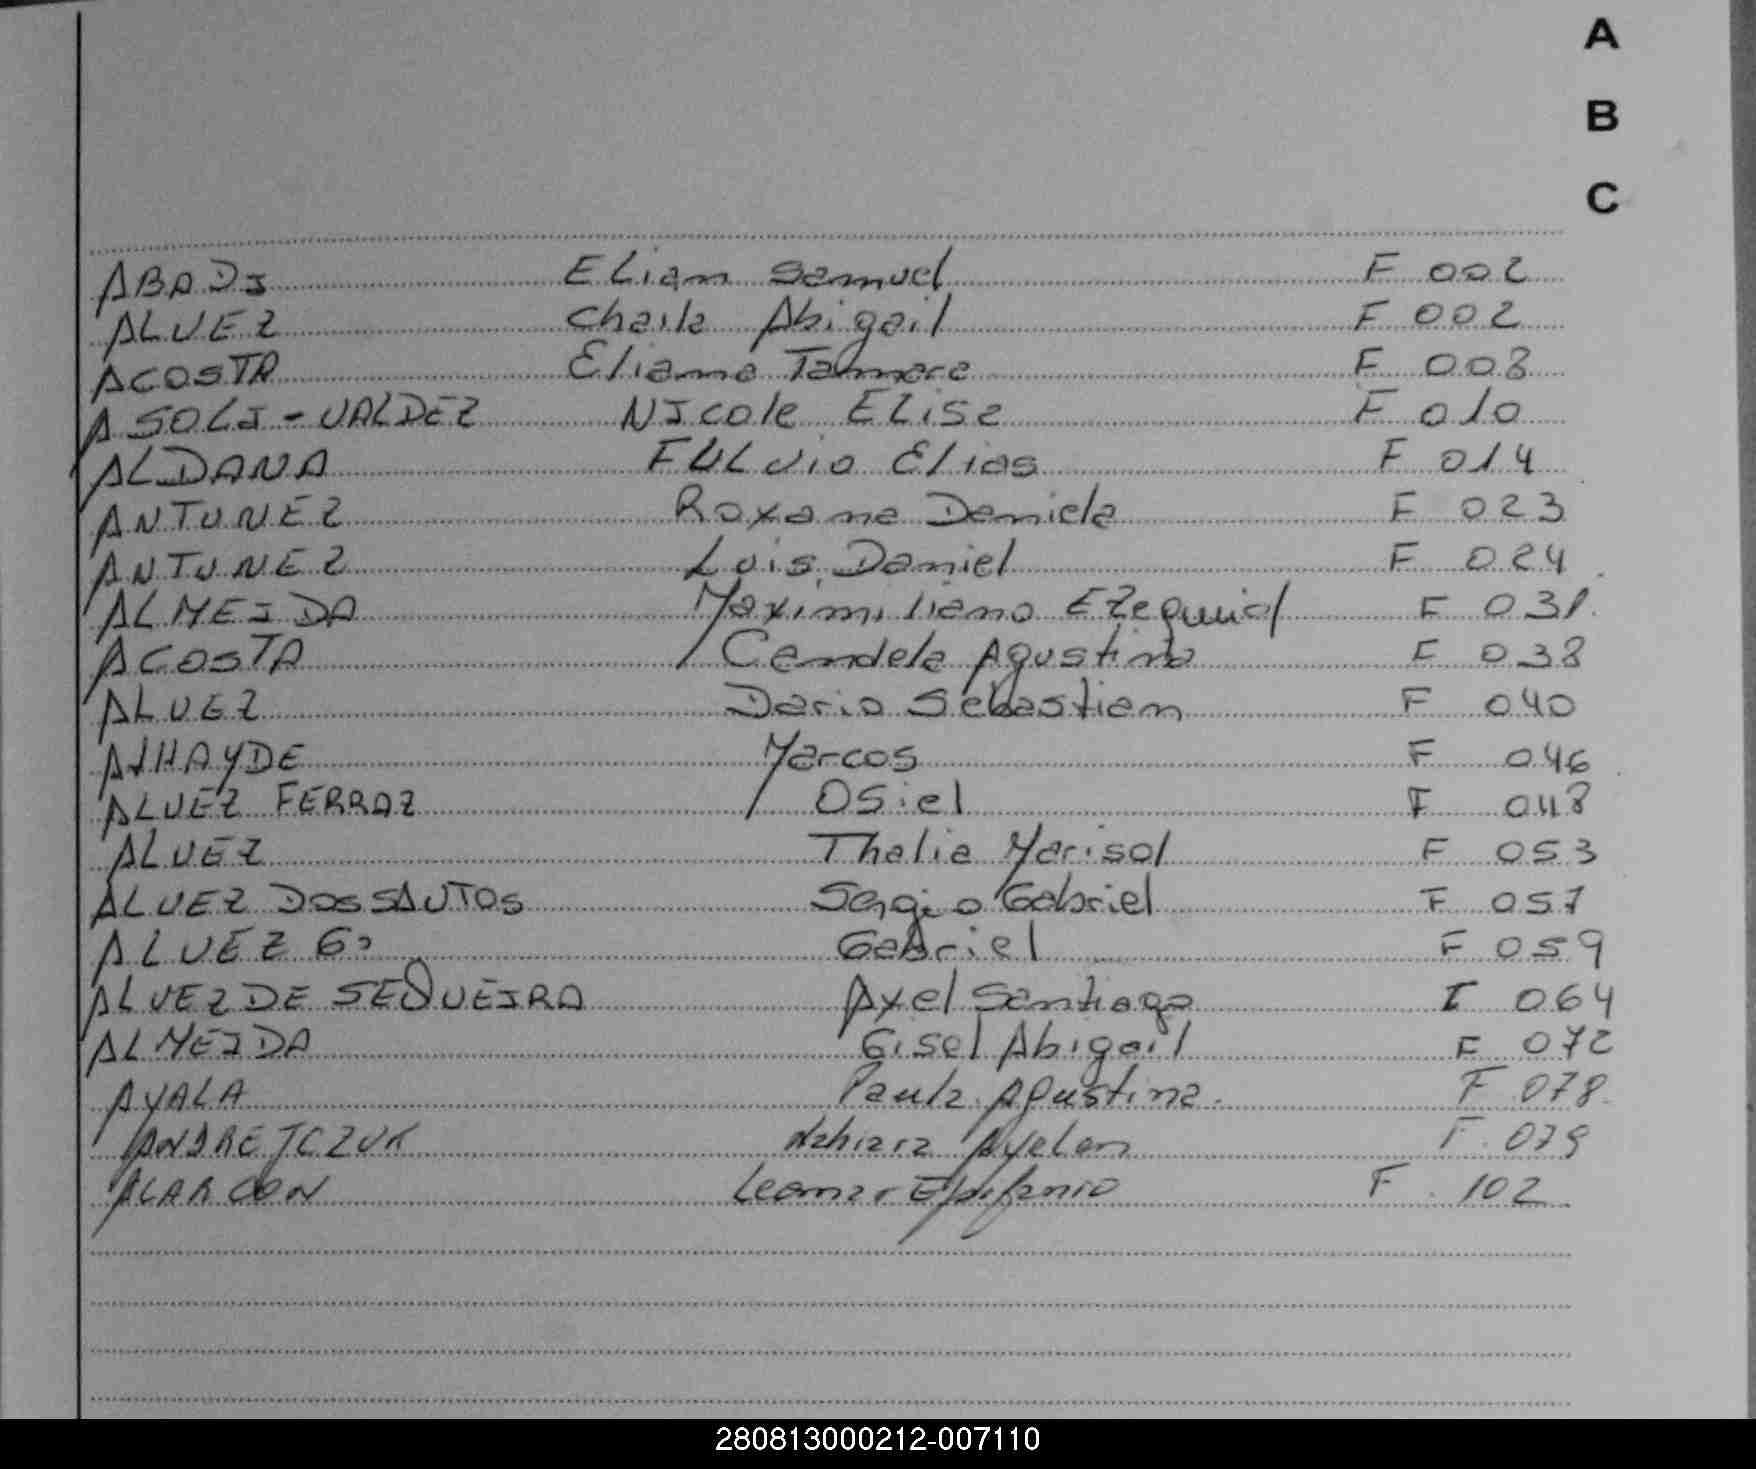 A
B
C
ABADI Eliam Samuel F 002
ALVEZ Chaila Abigail F 002
ACOSTA Eliana Tamara F 008
ASOLI - VALDEZ Nicole Elisa F 010
ALDANA Fulvio Elias F 014
ANTUNEZ Roxana Daniela F 023
ANTUNEZ Luis Daniel F 024
ALMEIDA Maximiliano Ezequiel F 031
ACOSTA Candela Agustina F 038
ALVEZ Dario Sebastian F 040
ATHAYDE Marcos F 046
ALVEZ FERRAZ Osiel F 048
ALVEZ Thalia Marisol F 053
ALVEZ DOS SANTOS Sergio Gabriel F 057
ALVEZ Gabriel F 059
ALVEZ DE SEQUEIRA Axel Santiago F 064
ALMEIDA Gisel Abigail F 072
AYALA Paula Agustina. F 078
ANDREJCZUK Nahiara Ayelen F 079
ALARCON Leomar Epifanio F 102
280813000212-007110